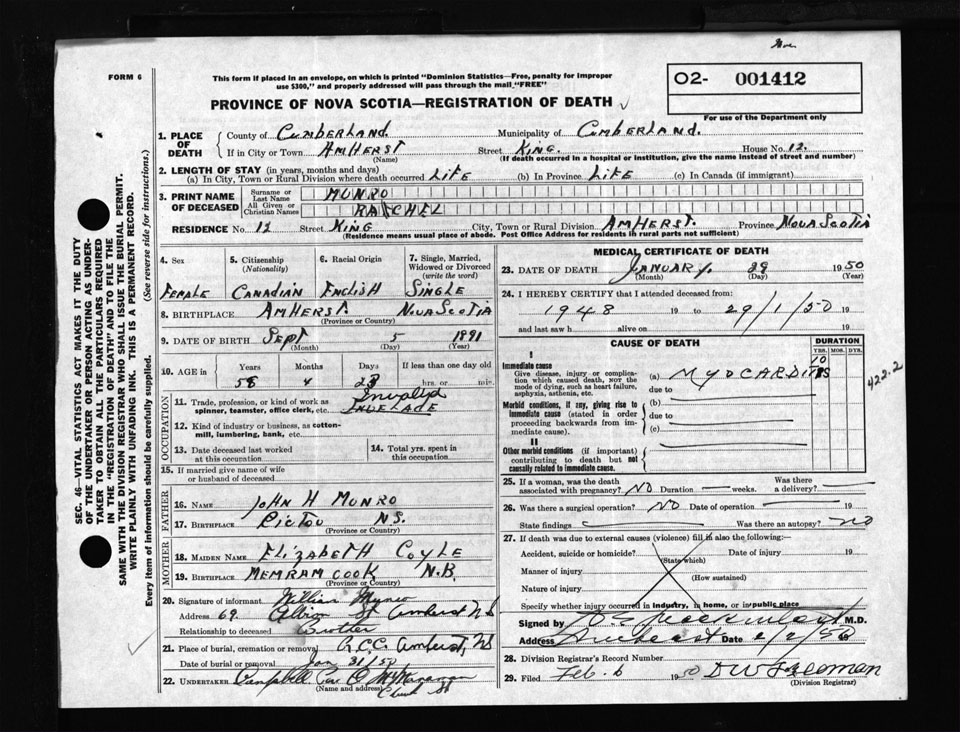 FORM 6
This form if placed in an envelope, on which is printed "Dominion Statistics—Free, penalty for improper
use $300," and properly addressed will pass through the mail "FREE"
O2- 001412
For use of the Department only
PROVINCE OF NOVA SCOTIA—REGISTRATION OF DEATH
1. PLACE OF DEATH County of Cumberland. Municipality of Cumberland.
If in City or Town AMHERST (Name) Street KING. House No. 12.
(If death occurred in a hospital or institution, give the name instead of street and number)
2. LENGTH OF STAY (in years, months and days)
(a) In City, Town or Rural Division where death occurred LIFE (b) In Province LIFE (c) In Canada (if immigrant)
3. PRINT NAME OF DECEASED
Surname or Last Name MUNRO
All Given or Christian Names RACHEL
RESIDENCE No. 12 Street KING City, Town or Rural Division AMHERST. Province NOVA SCOTIA
(Residence means usual place of abode. Post Office Address for residents in rural parts not sufficient)
SEC. 46—VITAL STATISTICS ACT MAKES IT THE DUTY
OF THE UNDERTAKER OR PERSON ACTING AS UNDER-
TAKER TO OBTAIN ALL THE PARTICULARS REQUIRED
IN THE "REGISTRATION OF DEATH" AND TO FILE THE
SAME WITH THE DIVISION REGISTRAR WHO SHALL ISSUE THE BURIAL PERMIT.
WRITE PLAINLY WITH UNFADING INK. THIS IS A PERMANENT RECORD.
Every item of information should be carefully supplied. (See reverse side for instructions.)
4. Sex 5. Citizenship (Nationality) 6. Racial Origin 7. Single, Married, Widowed or Divorced (write the word)
FEMALE CANADIAN ENGLISH SINGLE
8. BIRTHPLACE AMHERST. NOVA SCOTIA
(Province or Country)
9. DATE OF BIRTH Sept 5 1891
(Month) (Day) (Year)
10. AGE in Years Months Days If less than one day old
58 4 23 hrs. or min.
OCCUPATION
11. Trade, profession, or kind of work as spinner, teamster, office clerk, etc. Invalid
12. Kind of industry or business, as cotton-mill, lumbering, bank, etc.
13. Date deceased last worked at this occupation 14. Total yrs. spent in this occupation
15. If married give name of wife or husband of deceased
FATHER
16. Name JOHN H MUNRO
17. Birthplace PICTOU N.S.
(Province or Country)
MOTHER
18. Maiden Name ELIZABETH COYLE
19. Birthplace MEMRAMCOOK N.B.
(Province or Country)
20. Signature of informant William
Address 69. Albion St Amherst NS
Relationship to deceased Brother
21. Place of burial, cremation or removal Amherst, NS
Date of burial or removal Jan 31/50
22. UNDERTAKER Campbell
(Name and address) Church St
MEDICAL CERTIFICATE OF DEATH
23. DATE OF DEATH JANUARY. 29 1950
(Month) (Day)
24. I HEREBY CERTIFY that I attended deceased from:
1948 19 to 29/1/50 19
and last saw h alive on 19
CAUSE OF DEATH DURATION
YRS. MOS. DYS.
I
Immediate cause
Give disease, injury or complication which caused death, NOT the mode of dying, such as heart failure, asphyxia, asthenia, etc.
(a) MYOCARDITIS 10
due to
422.2
Morbid conditions, if any, giving rise to immediate cause (stated in order proceeding backwards from immediate cause).
(b)
due to
(c)
II
Other morbid conditions (if important) contributing to death but not causally related to immediate cause.
25. If a woman, was the death associated with pregnancy? NO Duration — weeks. Was there a delivery? —
26. Was there a surgical operation? NO Date of operation — 19
State findings Was there an autopsy? no
27. If death was due to external causes (violence) fill in also the following:—
Accident, suicide or homicide? (State which) Date of injury 19
Manner of injury (How sustained)
Nature of injury
Specify whether injury occurred in industry, in home, or in public place
Signed by M.D.
Address Amherst Date 2/2/50
28. Division Registrar's Record Number
29. Filed Feb. 6 1950
(Division Registrar)